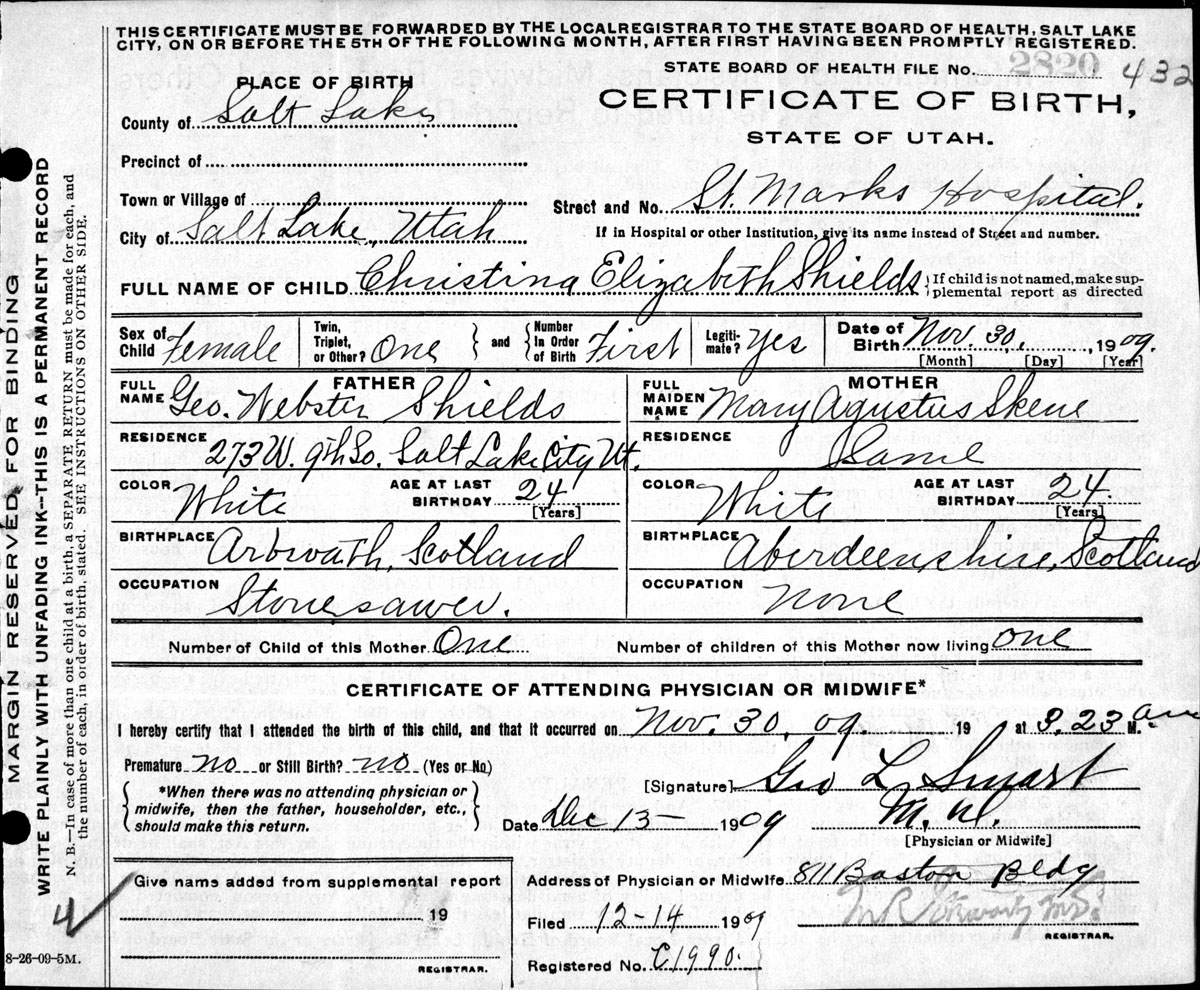 THIS CERTIFICATE MUST BE FORWARDED BY THE LOCAL REGISTRAR TO THE STATE BOARD OF HEALTH, SALT LAKE
CITY, ON OR BEFORE THE 5TH OF THE FOLLOWING MONTH, AFTER FIRST HAVING BEEN PROMPTLY REGISTERED.
STATE BOARD OF HEALTH FILE No. 2820 432
PLACE OF BIRTH
CERTIFICATE OF BIRTH,
STATE OF UTAH.
County of Salt Lake
Precinct of
Town or Village of
Street and No. St. Marks Hospital.
City of Salt Lake, Utah
If in Hospital or other Institution, give its name instead of Street and number.
FULL NAME OF CHILD Christina Elizabeth Shields { If child is not named, make sup-
plemental report as directed
Sex of Child Female Twin, Triplet, or Other? One } and { Number In Order of Birth First Legiti-mate? Yes Date of Birth Nov. 30, , 1909.
[Month] [Day] [Year]
FATHER MOTHER
FULL NAME Geo. Webster Shields FULL MAIDEN NAME Mary Agustus Skene
RESIDENCE 273 W. 9th So. Salt Lake City Ut. RESIDENCE Same
COLOR White AGE AT LAST BIRTHDAY 24 [Years] COLOR White AGE AT LAST BIRTHDAY 24. [Years]
BIRTHPLACE Arbroath, Scotland BIRTHPLACE Aberdeenshire, Scotland
OCCUPATION Stone sawer. OCCUPATION None
Number of Child of this Mother One Number of children of this Mother now living one
CERTIFICATE OF ATTENDING PHYSICIAN OR MIDWIFE*
I hereby certify that I attended the birth of this child, and that it occurred on Nov. 30. 09. 19 at 3.23 am M.
Premature no or Still Birth? no (Yes or No)
[Signature] Geo L. Smart
M.D.
[Physician or Midwife]
{ *When there was no attending physician or
midwife, then the father, householder, etc.,
should make this return. }
Date Dec 13 1909
Give name added from supplemental report
19
REGISTRAR.
Address of Physician or Midwife 811 Boston Bldg
Filed 12-14 1909
REGISTRAR.
Registered No. C1990.
MARGIN RESERVED FOR BINDING
WRITE PLAINLY WITH UNFADING INK--THIS IS A PERMANENT RECORD
N. B.—In case of more than one child at a birth, a SEPARATE RETURN must be made for each, and
the number of each, in order of birth, stated. SEE INSTRUCTIONS ON OTHER SIDE.
4
8-26-09-5M.